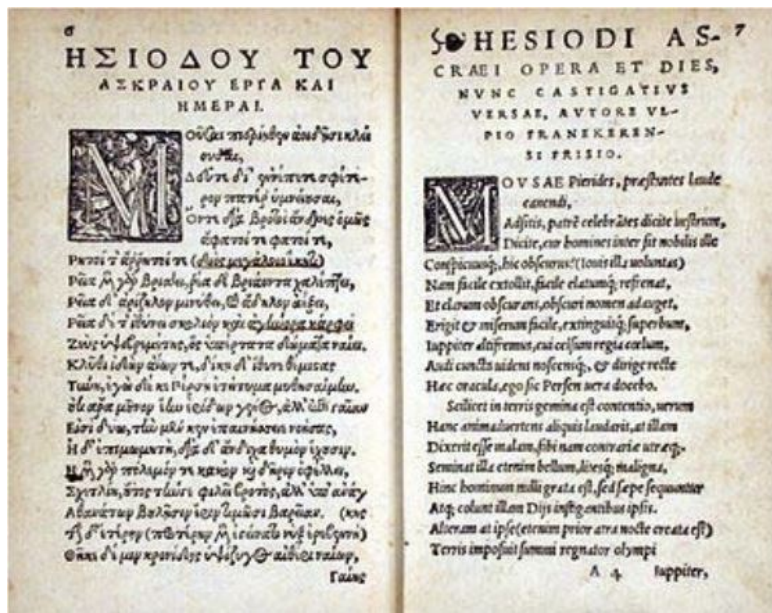 6
ΗΣΙΟΔΟΥ ΤΟΥ
ΑΣΚΡΑΙΟΥ ΕΡΓΑ ΚΑΙ
ΗΜΕΡΑΙ.
Μοῦσαι πιερίηθεν ἀοιδῇσι κλεί
ουσαι,
Δεῦτε δὴ ἐννέπετε σφέτε-
ρον πατέρ' ὑμνείουσαι,
Ὅντε διὰ βροτοὶ ἄνδρες ὁμῶς
ἄφατοί τε φατοί τε,
Ῥητοί τ' ἄρρητοί τε (διὸς μεγάλοιο ἕκητι)
Ῥεῖα μὲν γὰρ βριάει, ῥεῖα δὲ βριάοντα χαλέπτει,
Ῥεῖα δ' ἀρίζηλον μινύθει, καὶ ἄδηλον ἀέξει,
Ῥεῖα δέ τ' ἰθύνει σκολιὸν καὶ ἀγήνορα κάρφει
Ζεὺς ὑψιβρεμέτης, ὃς ὑπέρτατα δώματα ναίει.
Κλῦθι ἰδὼν ἀΐων τε, δίκῃ δ' ἴθυνε θέμιστας
Τύνη, ἐγὼ δέ κε Πέρσῃ ἐτήτυμα μυθησαίμην.
Οὐκ ἄρα μοῦνον ἔην ἐρίδων γένος, ἀλλ' ἐπὶ γαῖαν
Εἰσὶ δύω, τὴν μέν κεν ἐπαινήσειε νοήσας,
Ἡ δ' ἐπιμωμητὴ, διὰ δ' ἄνδιχα θυμὸν ἔχουσιν.
Ἡ μὲν γὰρ πόλεμόν τε κακὸν καὶ δῆριν ὀφέλλει,
Σχετλίη, οὔτις τήνγε φιλεῖ βροτὸς, ἀλλ' ὑπ' ἀνάγ
Ἀθανάτων βουλῇσιν ἔριν τιμῶσι βαρεῖαν. (κης
Τὴν δ' ἑτέρην (προτέρην μὲν ἐγείνατο νὺξ ἐρεβεννὴ)
Θῆκε δέ μιν κρονίδης ὑψίζυγος αἰθέρι ναίων,
Γαίης
7
HESIODI AS-
CRAEI OPERA ET DIES,
NVNC CASTIGATIVS
VERSAE, AVTORE VL-
PIO FRANEKEREN-
SI FRISIO.
MOVSAE Pierides, præstantes laude
canendi,
Adsitis, patrē celebrātes dicite uestrum,
Dicite, cur homines inter sit nobilis ille
Conspicuusq;, hic obscurus: (Iouis illa uoluntas)
Nam facile extollit, facile elatumq; refrenat,
Et clarum obscurans, obscuri nomen adauget,
Erigit & miserum facile, extinguitq; superbum,
Iuppiter altifremus, cui celsum regia cœlum,
Audi cuncta uidens noscensq;, & dirige recte
Hæc oracula, ego sic Persen uera docebo.
Scilicet in terris gemina est contentio, uerum
Hanc animaduertens aliquis laudarit, at illam
Dixerit esse malam, sibi nam contrariæ utræq;.
Seminat illa etenim bellum, litesq; maligna,
Hinc hominum nulli grata est, sed sæpe sequuntur
Atq; colunt illam Dijs instigantibus ipsis.
Alteram at ipse (etenim prior atra nocte creata est)
Terris imposuit summi regnator olympi
A 4 Iuppiter,